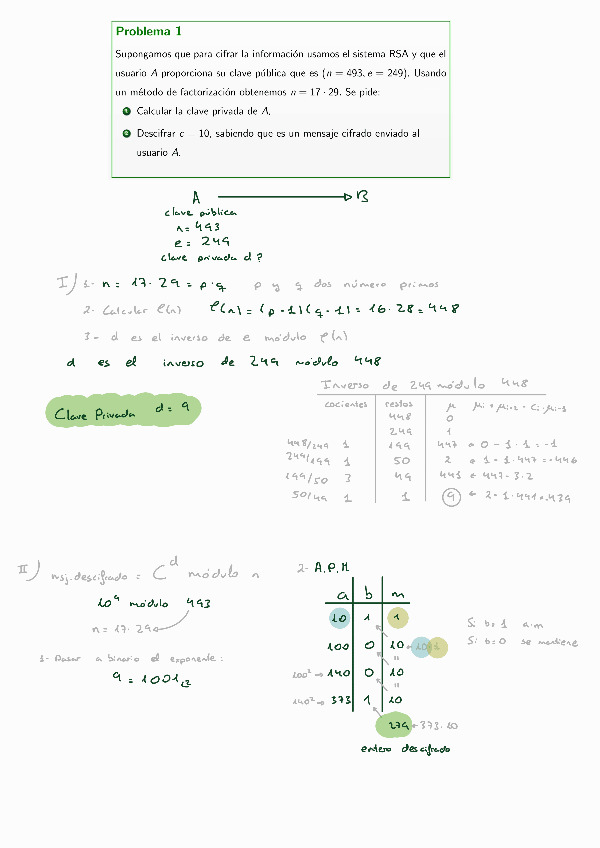 Problema 1
Supongamos que para cifrar la información usamos el sistema RSA y que el
usuario A proporciona su clave pública que es (n = 493, e = 249). Usando
un método de factorización obtenemos n = 17 · 29. Se pide:
1 Calcular la clave privada de A.
2 Descifrar c = 10, sabiendo que es un mensaje cifrado enviado al
usuario A.
A → B
clave pública
n = 493
e = 249
clave privada d?
I) 1- n = 17 · 29 = p · q p y q dos número primos
2- Calcular φ(n) φ(n) = (p - 1)(q - 1) = 16 · 28 = 448
3- d es el inverso de e módulo φ(n)
d es el inverso de 249 módulo 448
Clave Privada d = 9
Inverso de 249 módulo 448
cocientes restos μ μi = μi-2 - Ci · μi-1
448 0
249 1
448/249 1 199 447 ← 0 - 1 · 1 = -1
249/199 1 50 2 ← 1 - 1 · 447 = -446
199/50 3 49 441 ← 447 - 3 · 2
50/49 1 1 9 ← 2 - 1 · 441 = -439
II) msj. descifrado = C^d módulo n
10^9 módulo 493
n = 17 · 29
1- Pasar a binario el exponente:
9 = 1001₂
2- A.P.M
a b m
10 1 1
100 0 10 ← 10 · 1
100² → 140 0 10
140² → 373 1 10
279 ← 373 · 10
entero descifrado
Si b = 1 a·m
Si b = 0 se mantiene